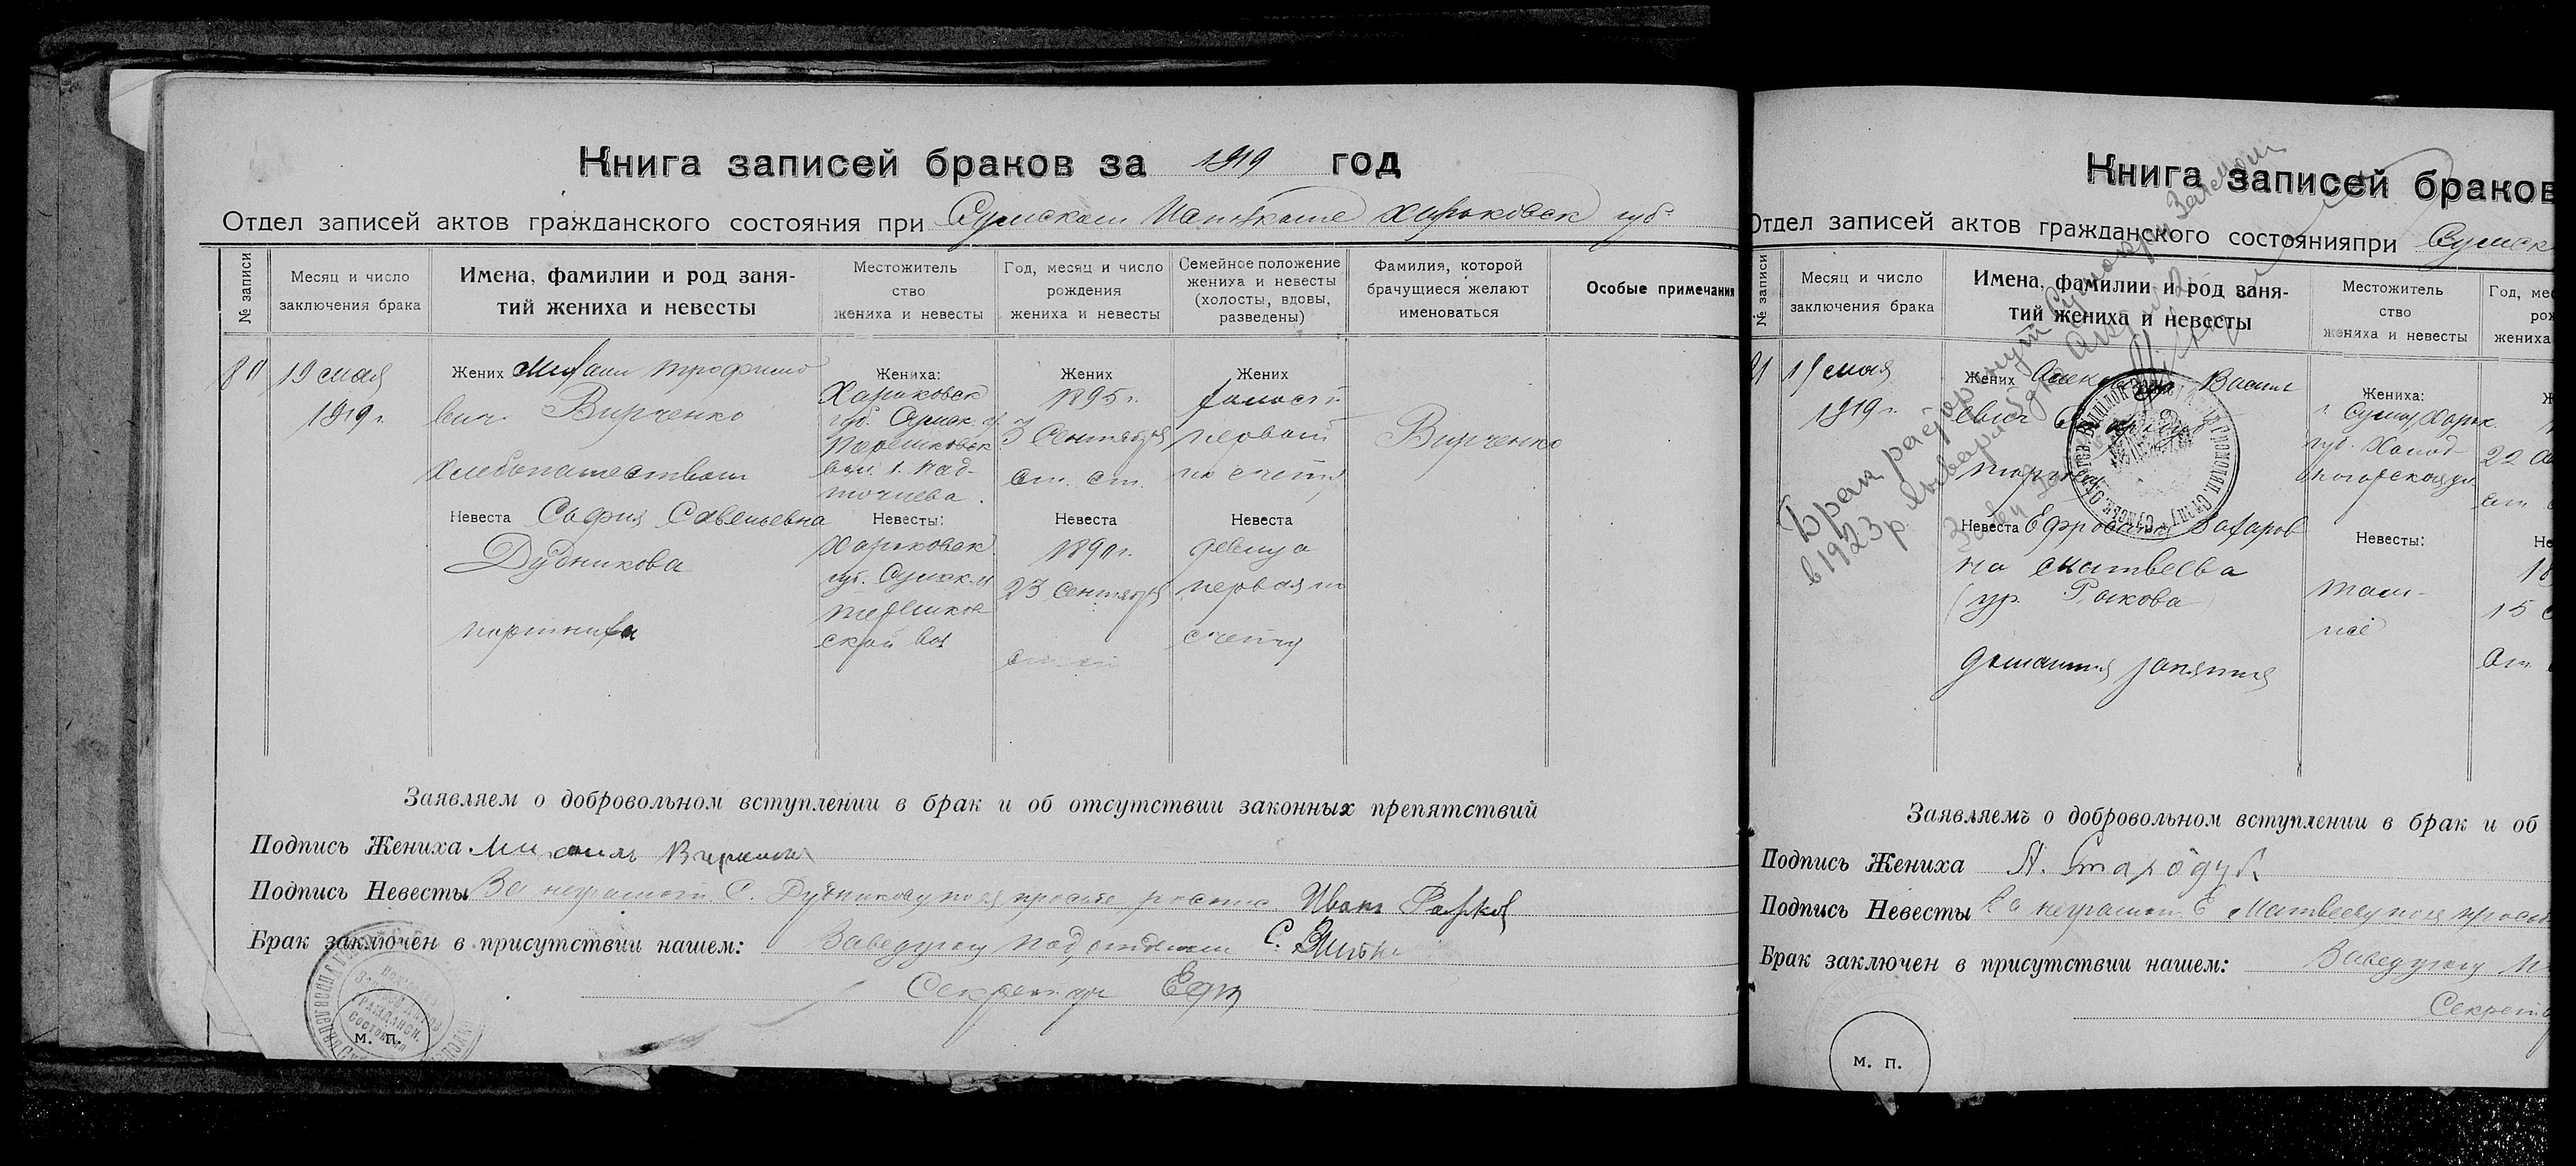 Книга записей браков за 1919 год
Отдел записей актов гражданского состояния при Сумском Харьковск губ.
№ записи
Месяц и число
заключения брака
Имена, фамилии и род заня-
тий жениха и невесты
Местожитель
ство
жениха и невесты
Год, месяц и число
рождения
жениха и невесты
Семейное положение
жениха и невесты
(холосты, вдовы,
разведены)
Фамилия, которой
брачущиеся желают
именоваться
Особые примечания
80
19 мая
1919 г.
Жених Михаил Трофимо
вич Вирченко
Хлебопашеством
Жениха:
Харьковск
губ. Сумск. у
вол.
Жених
1895 г.
3 Сентября
ст. ст.
Жених
холост
первый
по счету
Вирченко
Невеста София Савельевна
Дудникова
портниха
Невесты:
Харьковск
губ. Сумск. у
ской вол
Невеста
1890 г.
23 Сентября
Невеста
девица
первая по
счету
Заявляем о добровольном вступлении в брак и об отсутствии законных препятствий
Подпись Жениха Михаил Вирченко
Подпись Невесты За неграмотн. С. Дудникову по ея просьбе роспис. Иван
Брак заключен в присутствии нашем: Заведующ подотделом С.
Секретарь
м. п.
Книга записей браков
Отдел записей актов гражданского состояния при Сумск
№ записи
Месяц и число
заключения брака
Имена, фамилии и род заня-
тий жениха и невесты
Местожитель
ство
жениха и невесты
Год, мес
рож
жениха
81
19 мая
1919 г.
Жених Александр Васил
евич
Жениха:
г. Сумы Харьк.
губ. Холод
ногорская ул
22
ст
Невеста Ефросинья Захаров
на Матвеева
(ур. Рыкова)
домашния занятия
Невесты:
там-
же
Не
18
15 с
ст.
Брак расторгнут
в 1923 р. Января
Заявляемъ о добровольном вступлении в брак и об
Подпись Жениха А. Стародуб
Подпись Невесты За неграмотн. Е Матвееву по ея просьб
Брак заключен в присутствии нашем: Заведующ п
Секрета
м. п.